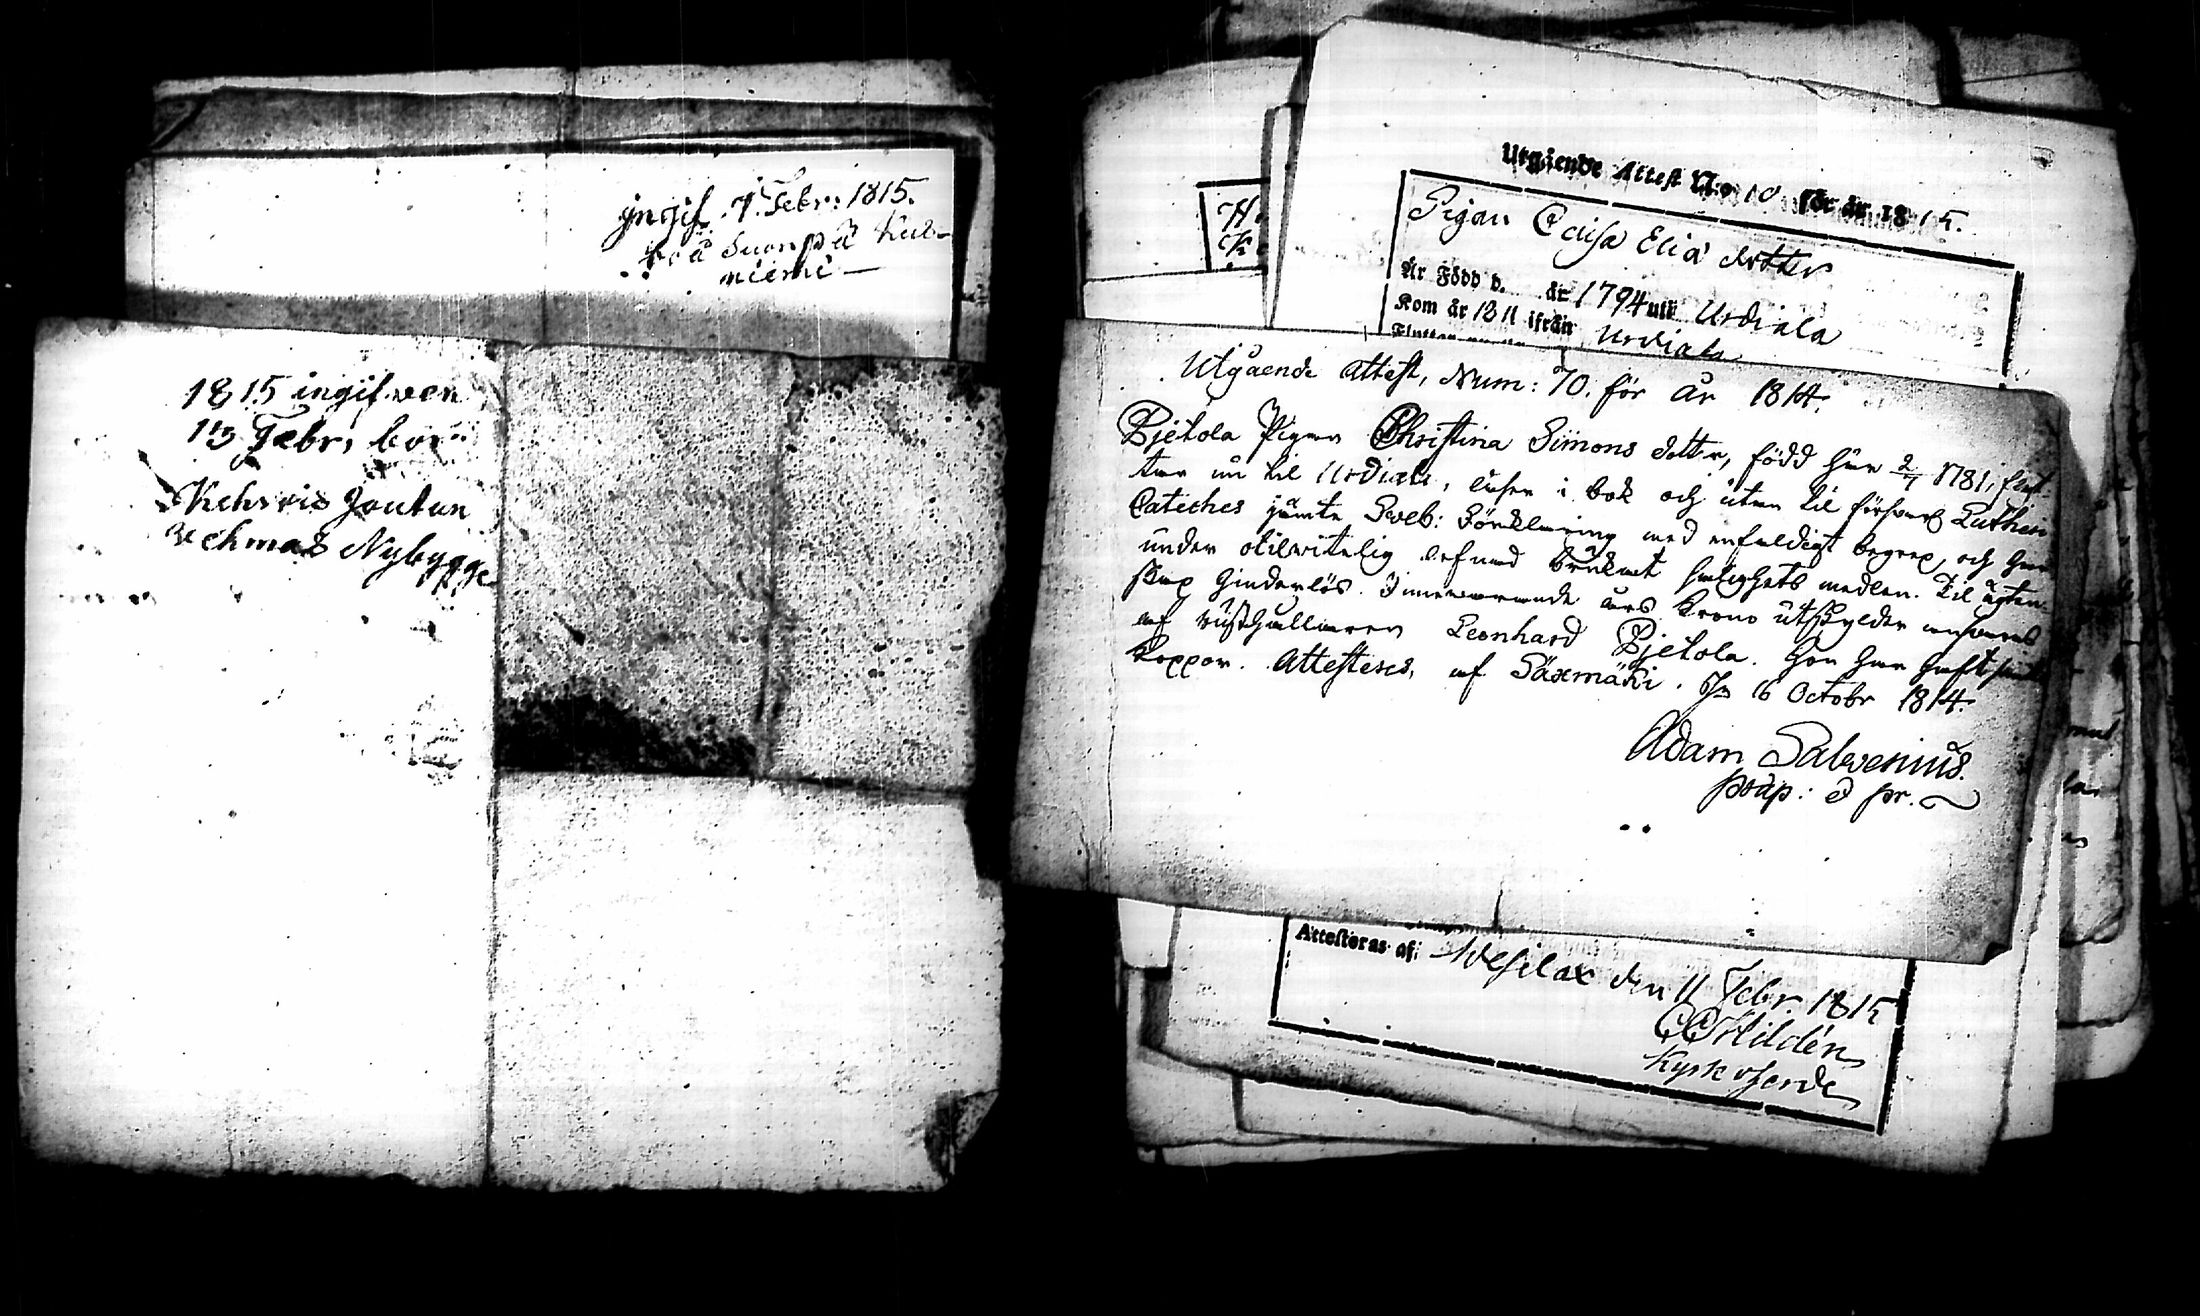 ingif. 7. Febr: 1815.
två Suonpä Kul-
niemi
1815 ingifven
13 Febr, bor
Kehris Joutun
vehmas Nybygge
Utgående Attest N:o 10 för år 1815.
Pigan Caisa Elia dotter
Är Född d. år 1794 uti Urdiala
Kom år 1811 ifrån Urdiala
Utgående attest, Num: 70. för år 1814.
Pjetola Pigan Christina Simons dotter, född här 2/7 1781, flyt-
tar nu til Urdiala, läser i bok och utan til försvarl Lutheri
Cateches jämte Sveb: Förklaring med enfaldigt begrep, och har
under oklanderlig lefnad brukat salighets medlen. Til ägten-
skap hinderlös. Innevarande års Krono utskylder ansvaras
af rusthållaren Leonhard Pjetola. Hon har haft
koppor. Attesteras, af Säxmäki. d. 16 Octobr 1814.
Adam Salvenius.
præp: & pr.
Attesteras af: Wesilax den 11 Febr. 1815
CC Hildén
Kyrkoherde